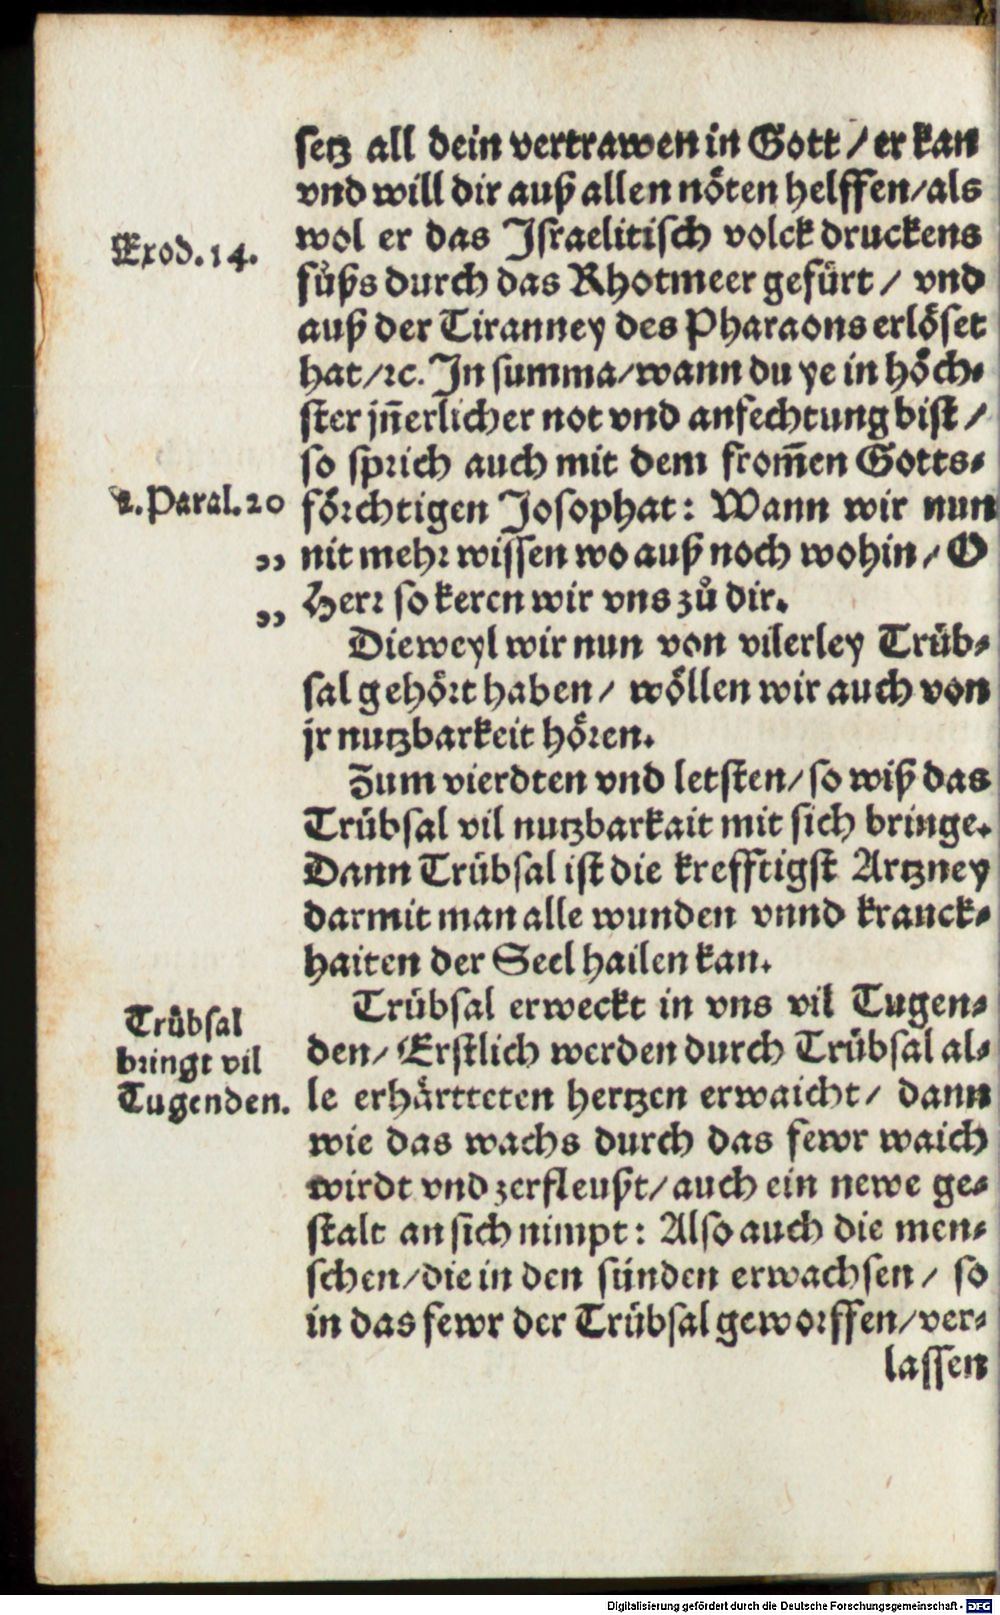 setz all dein vertrawen in Gott / er kan
vnd will dir auß allen nöten helffen/als
wol er das Israelitisch volck druckens
Exod. 14.
fůßs durch das Rhotmeer gefürt / vnd
auß der Tiranney des Pharaons erlöset
hat/ꝛc. In summa/wann du ye in höch-
ster jn̄erlicher not vnd anfechtung bist /
so sprich auch mit dem from̄en Gotts-
2. Paral. 20
förchtigen Josophat: Wann wir nun
„ nit mehr wissen wo auß noch wohin / O
„ Herr so keren wir vns zů dir.
Dieweyl wir nun von vilerley Trüb-
sal gehört haben / wöllen wir auch von
jr nutzbarkeit hören.
Zum vierdten vnd letsten/so wiß das
Trübsal vil nutzbarkait mit sich bringe.
Dann Trübsal ist die krefftigst Artzney
darmit man alle wunden vnnd kranck-
haiten der Seel hailen kan.
Trübsal erweckt in vns vil Tugen-
Trübsal
bringt vil
Tugenden.
den/ Erstlich werden durch Trübsal al-
le erhärtteten hertzen erwaicht / dann
wie das wachs durch das fewr waich
wirdt vnd zerfleußt/auch ein newe ge-
stalt an sich nimpt: Also auch die men-
schen/die in den sünden erwachsen / so
in das fewr der Trübsal geworffen/ver-
lassen
Digitalisierung gefördert durch die Deutsche Forschungsgemeinschaft - DFG